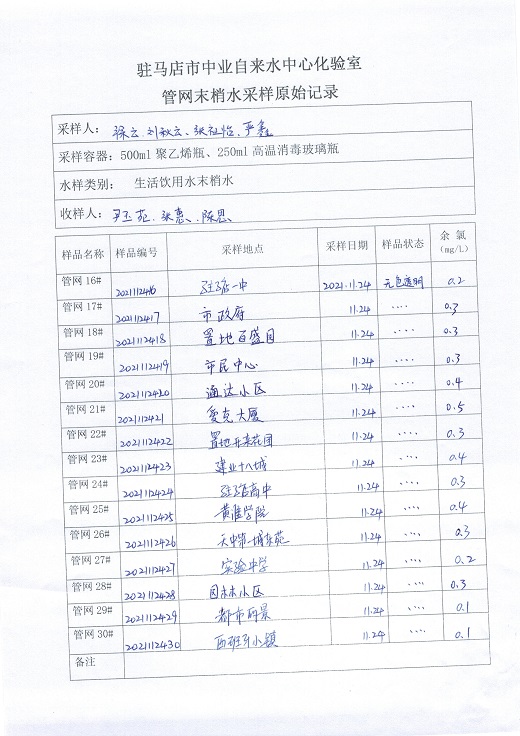 驻马店市中业自来水中心化验室
管网末梢水采样原始记录
采样人：徐云、刘秋云、张征怡、严鑫
采样容器：500ml 聚乙烯瓶、250ml 高温消毒玻璃瓶
水样类别： 生活饮用水末梢水
收样人：尹玉苑、张惠、陈思
样品名称 样品编号 采样地点 采样日期 样品状态 余氯（mg/L）
管网 16# 2021112416 驻店一中 2021.11.24 无色透明 0.2
管网 17# 2021112417 市政府 11.24 ···· 0.3
管网 18# 2021112418 置地百盛园 11.24 ···· 0.3
管网 19# 2021112419 市民中心 11.24 ···· 0.3
管网 20# 2021112420 通达小区 11.24 ···· 0.4
管网 21# 2021112421 爱克大厦 11.24 ···· 0.5
管网 22# 2021112422 置地开来花园 11.24 ···· 0.3
管网 23# 2021112423 建业十八城 11.24 ···· 0.4
管网 24# 2021112424 驻店高中 11.24 ···· 0.3
管网 25# 2021112425 黄淮学院 11.24 ···· 0.4
管网 26# 2021112426 天中第一城东苑 11.24 ···· 0.3
管网 27# 2021112427 实验中学 11.24 ···· 0.2
管网 28# 2021112428 园林小区 11.24 ···· 0.3
管网 29# 2021112429 都市丽景 11.24 ···· 0.1
管网 30# 2021112430 西班牙小镇 11.24 ···· 0.1
备注